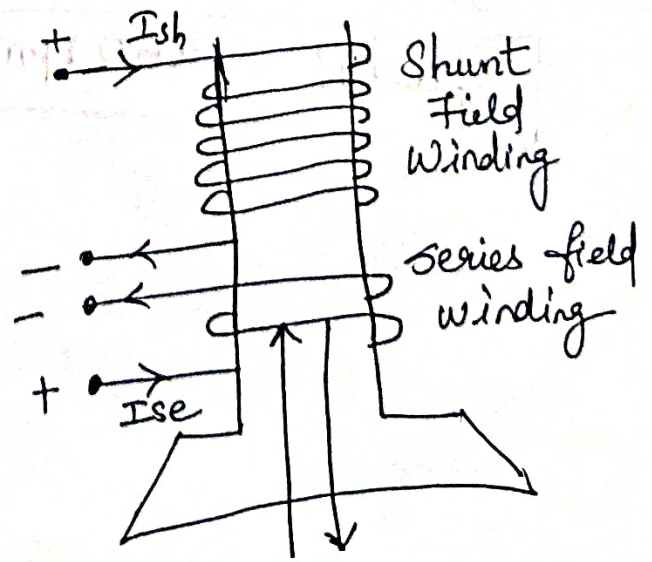 + Ish
Shunt
Field
Winding
−
series field
−
winding
+
Ise